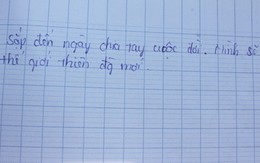 sắp đến ngày chia tay cuộc đời. Mình sẽ
thế giới thiên đg mới.